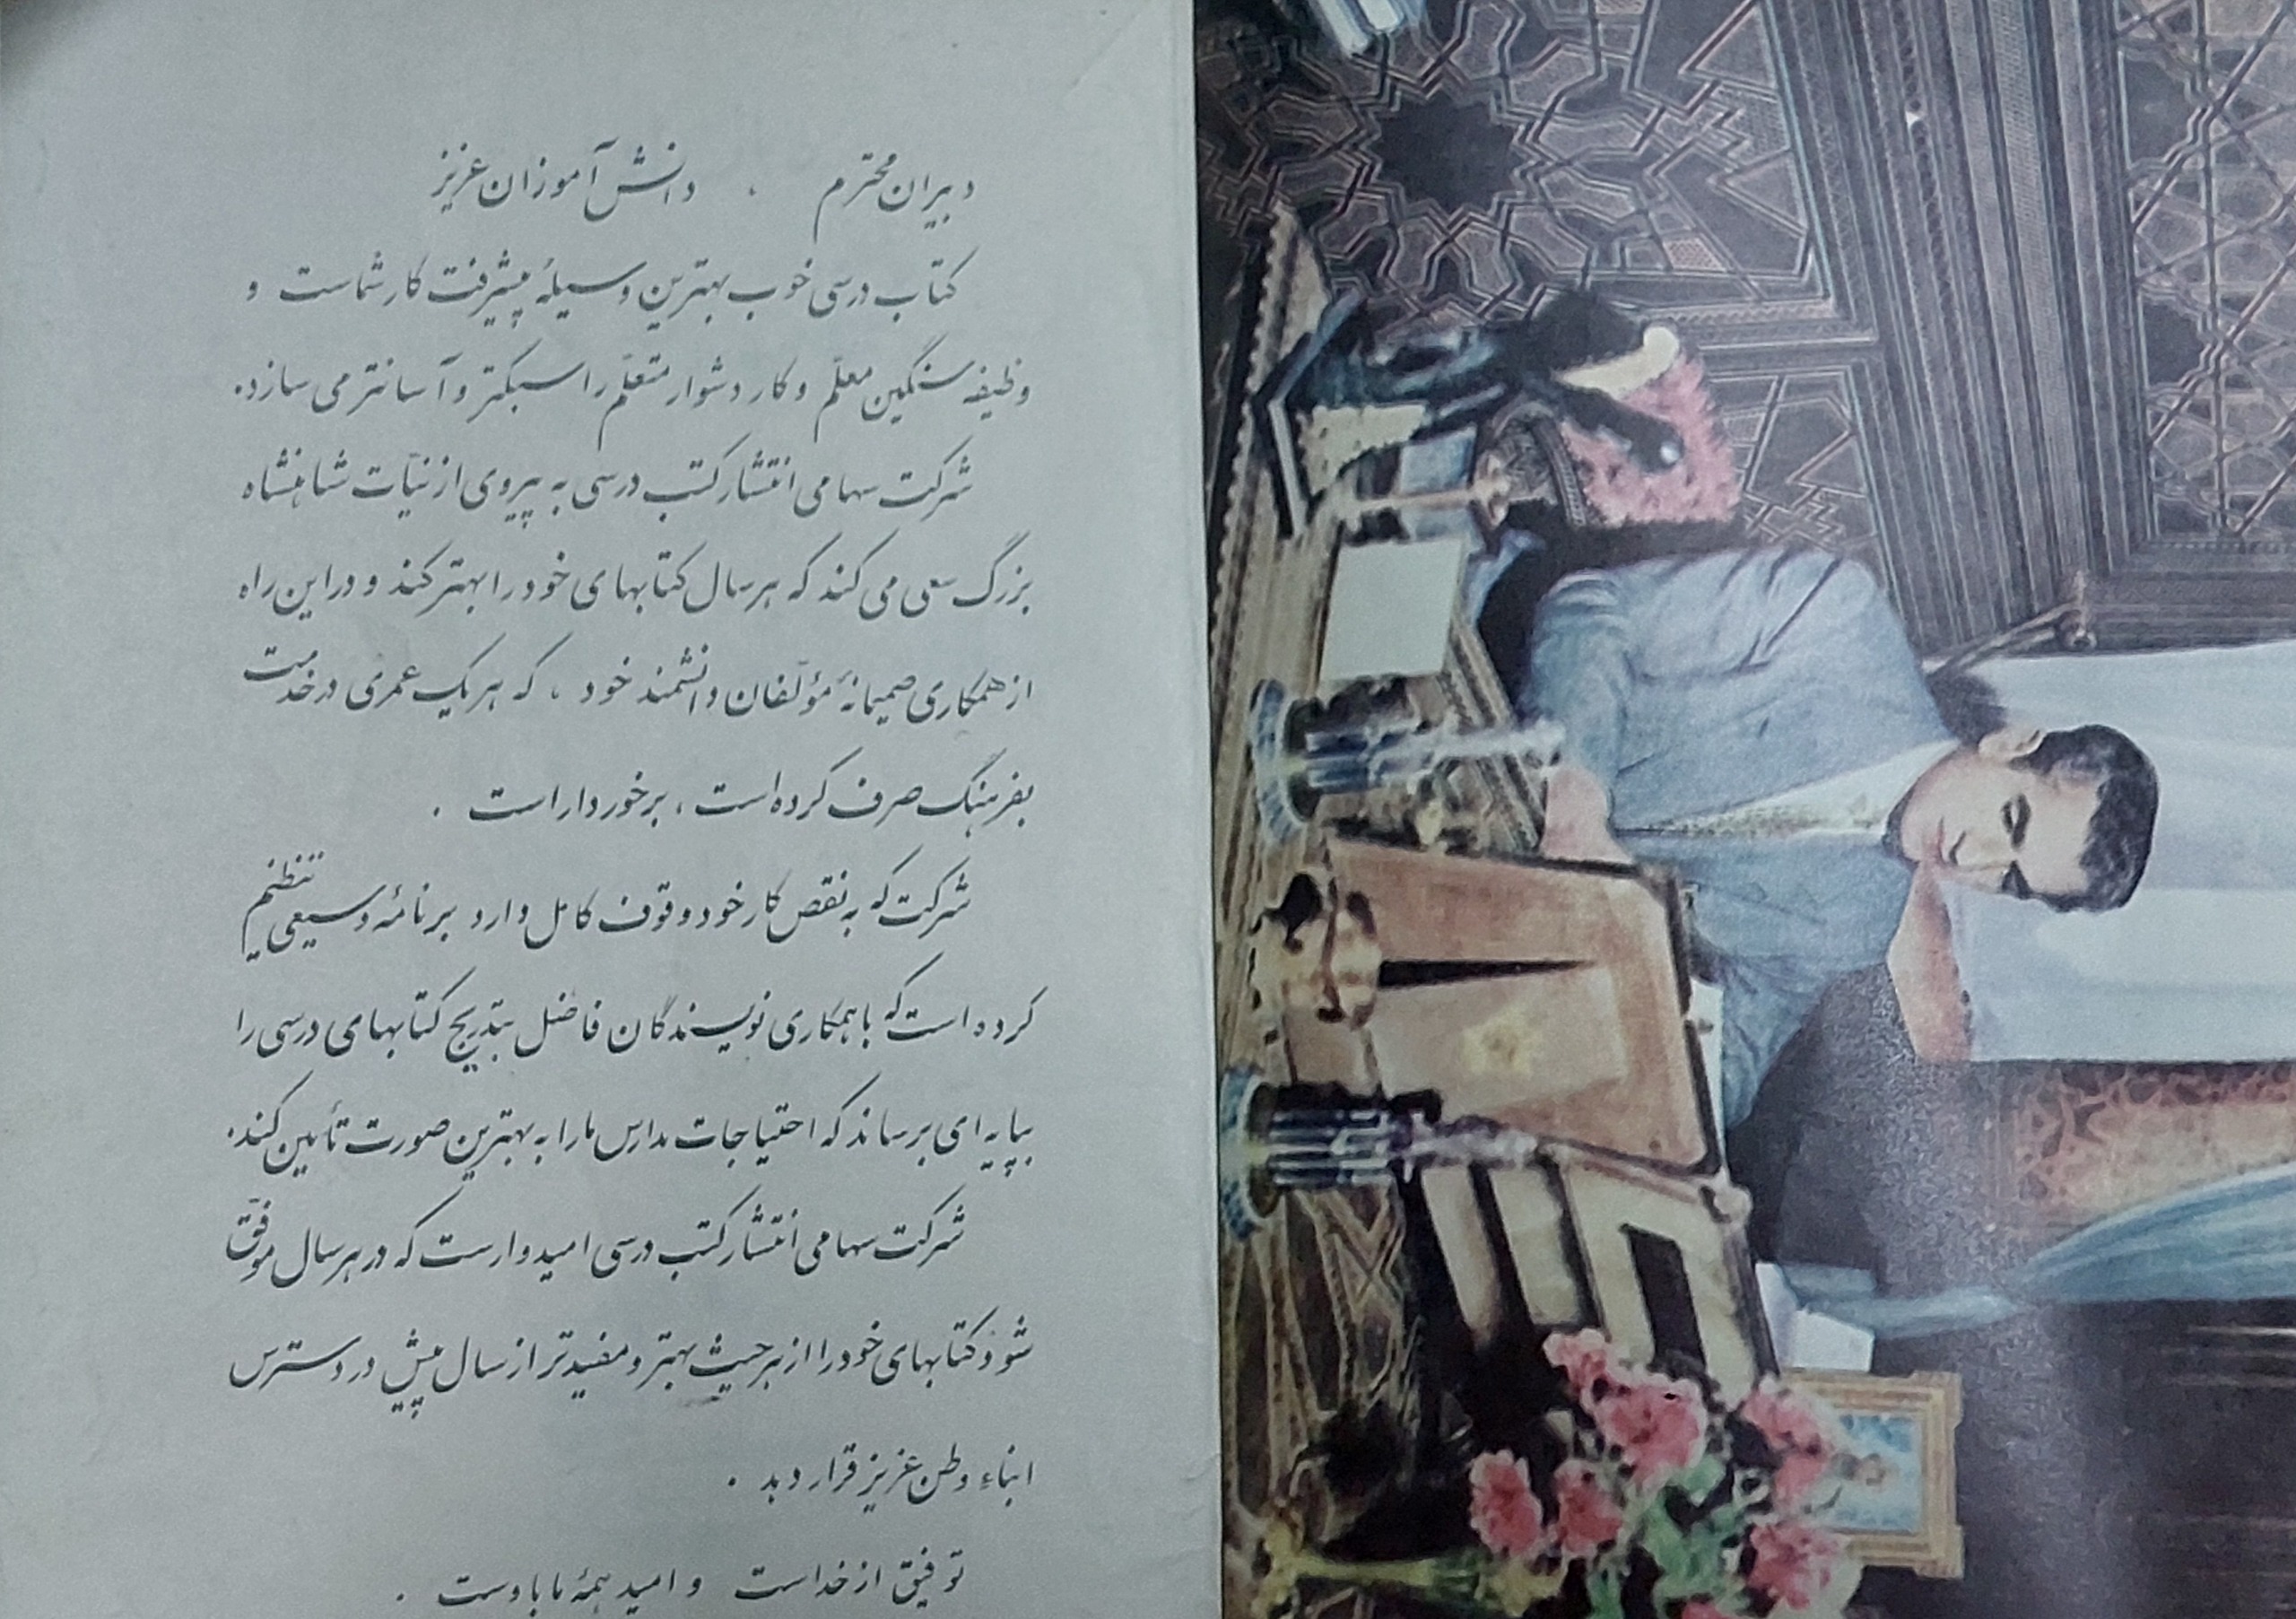 دبیران محترم ، دانش آموزان عزیز
کتاب درسی خوب بهترین وسیلهٔ پیشرفت کار شماست و
وظیفه سنگین معلّم و کار دشوار متعلّم را سبکتر و آسانتر می سازد.
شرکت سهامی انتشار کتب درسی به پیروی از نیّات شاهنشاه
بزرگ سعی می کند که هر سال کتابهای خود را بهتر کند و در این راه
از همکاری صمیمانهٔ مؤلّفان دانشمند خود ، که هر یک عمری در خدمت
بفرهنگ صرف کرده است ، برخوردار است .
شرکت که به نقص کار خود وقوف کامل دارد برنامهٔ وسیعی تنظیم
کرده است که با همکاری نویسندگان فاضل بتدریج کتابهای درسی را
بپایه ای برساند که احتیاجات مدارس ما را به بهترین صورت تأمین کند.
شرکت سهامی انتشار کتب درسی امیدوارست که در هر سال موفّق
شود کتابهای خود را از هر حیث بهتر و مفیدتر از سال پیش در دسترس
ابناء وطن عزیز قرار دهد .
توفیق از خداست و امید همهٔ ما باوست .